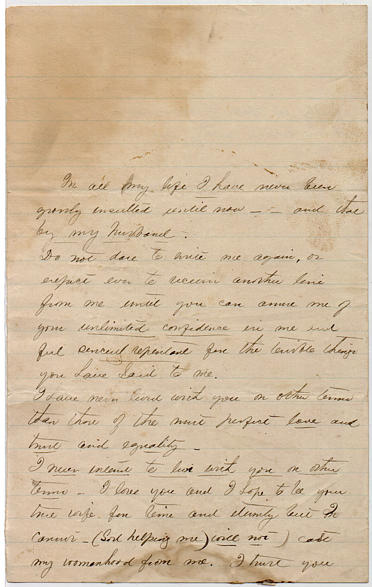 In all my life I have never been
grossly insulted until now — — and that
by my husband.
Do not dare to write me again, or
expect ever to receive another line
from me until you can assure me of
your unlimited confidence in me and
feel sincerely repentant for the terrible things
you have said to me.
I have never lived with you on other terms
than those of the most perfect love and
trust and equality —
I never intend to live with you on other
terms — I love you and I hope to be your
true wife for time and eternity but I
cannot — (God helping me) will not) cast
my womanhood from me. I trust you